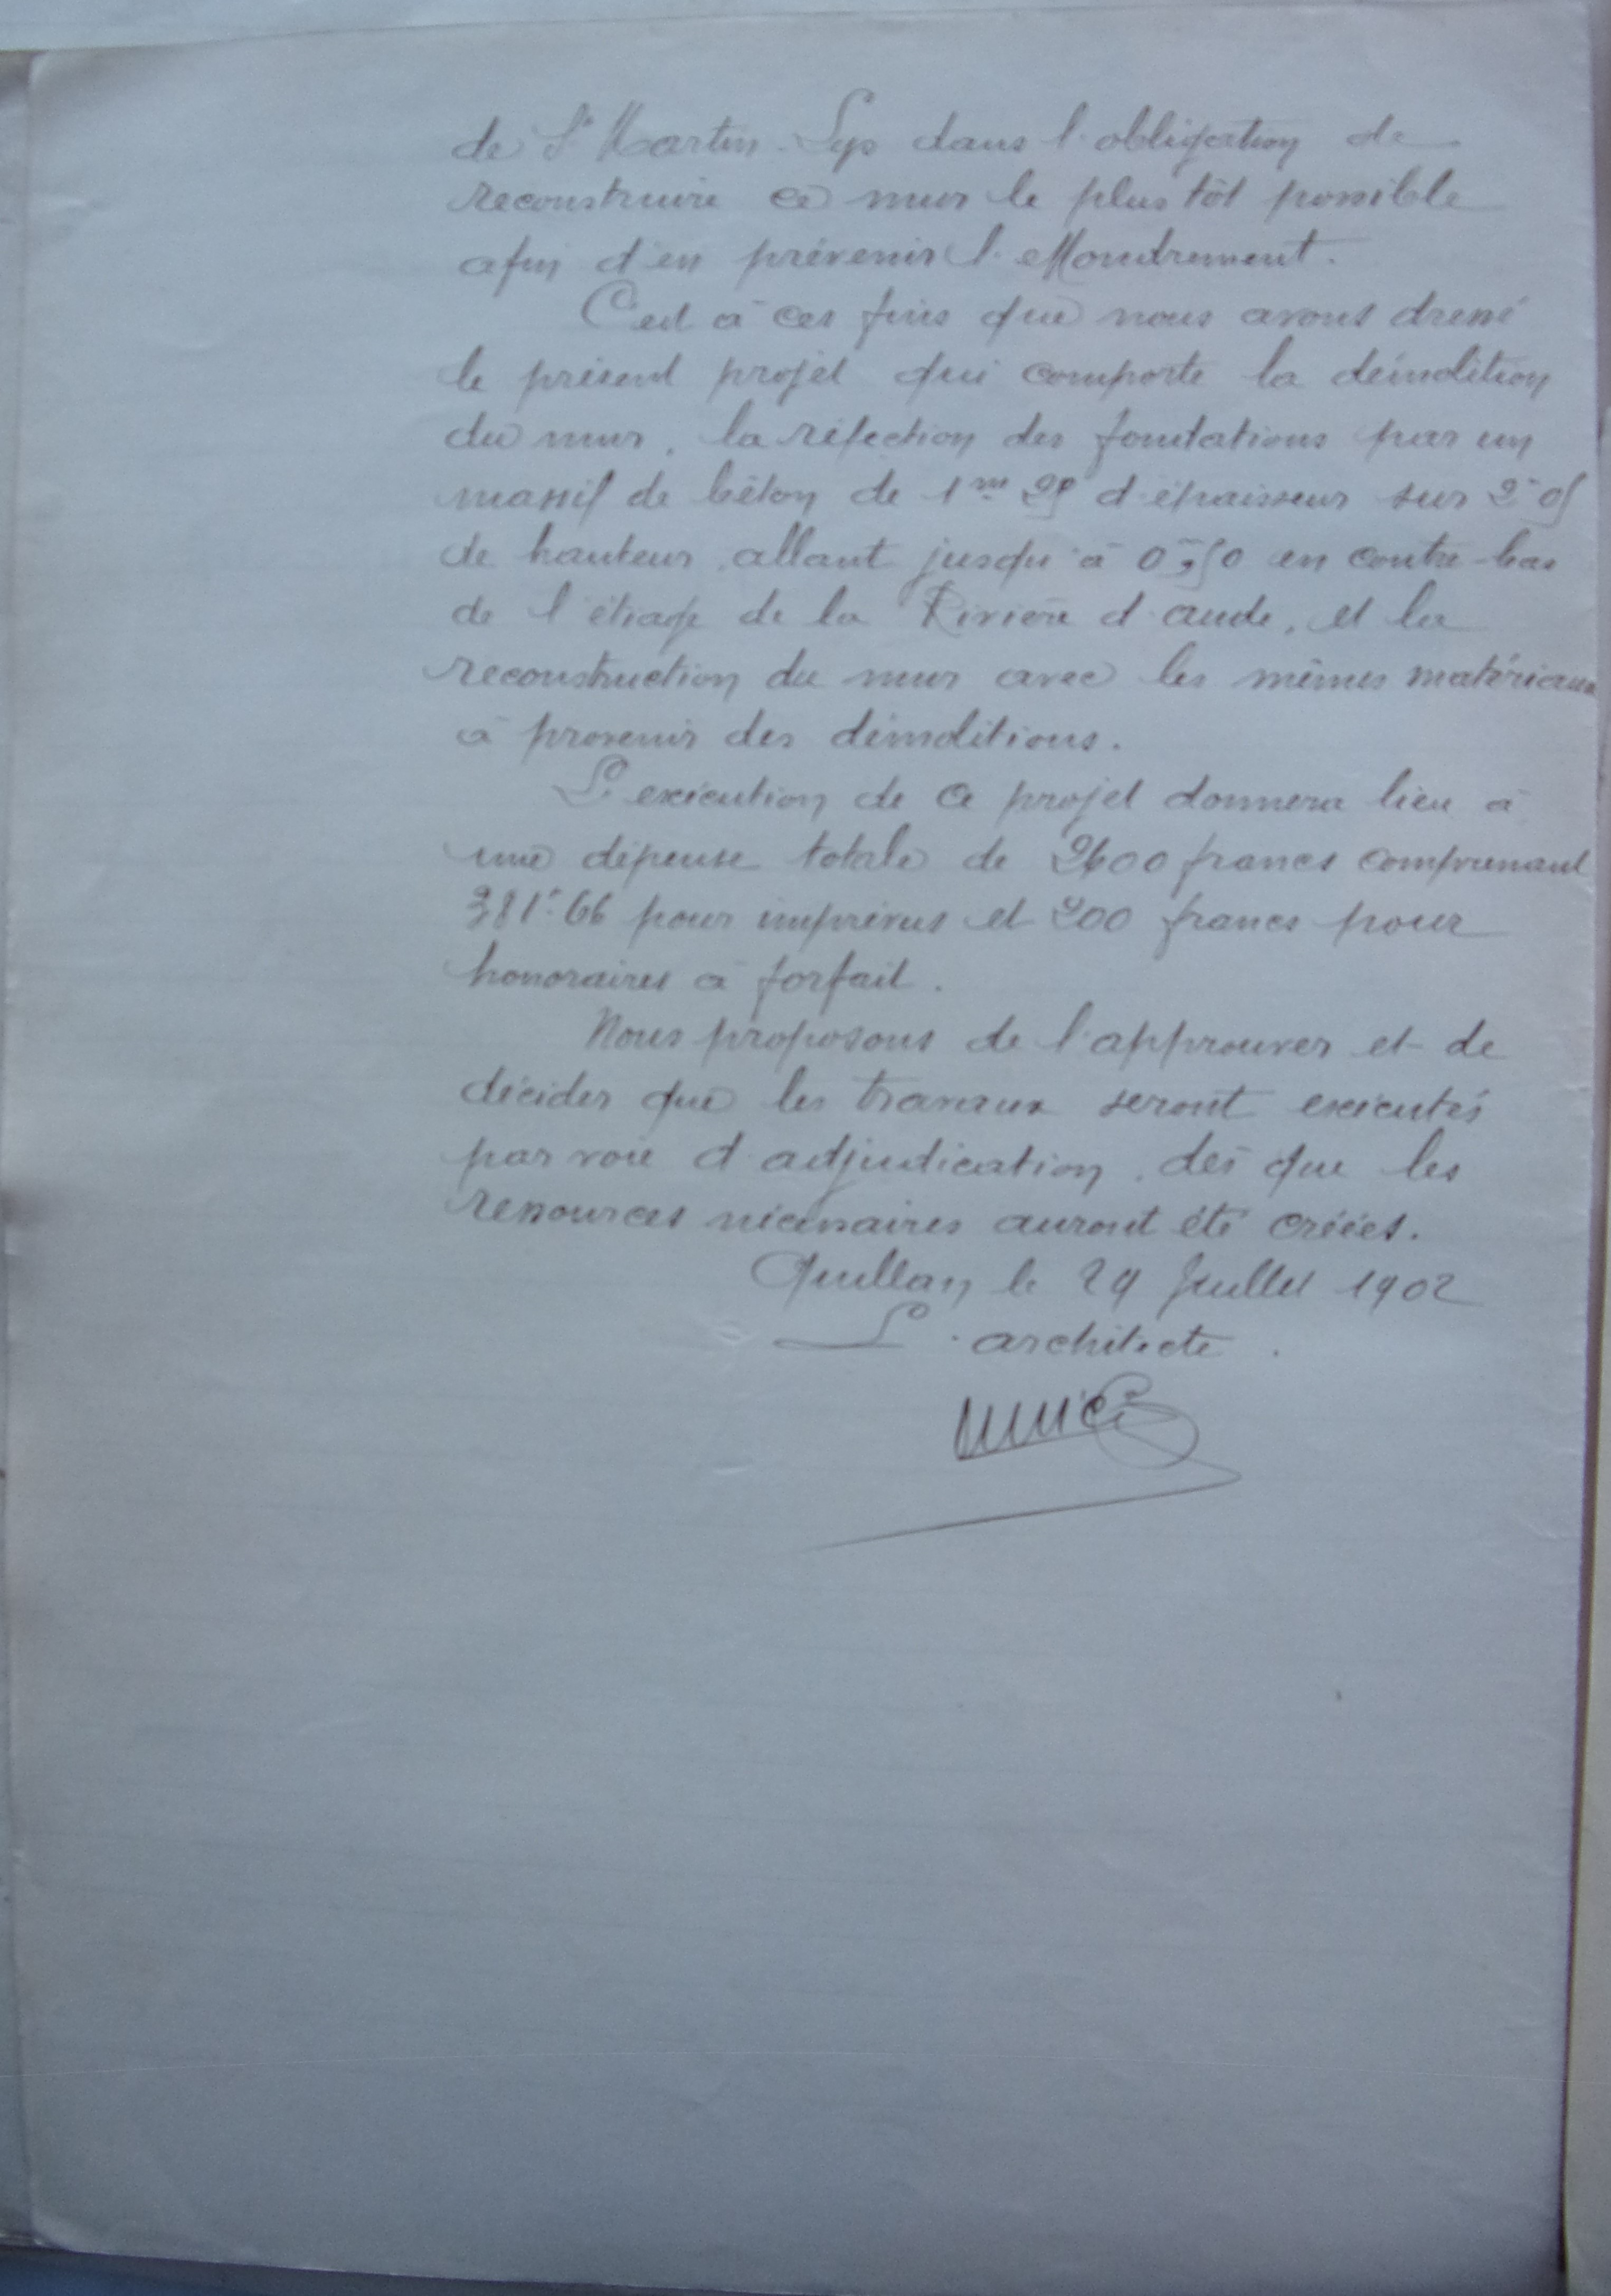 de St Martin-Lys dans l'obligation de
reconstruire ce mur le plus tôt possible
afin d'en prévenir l'effondrement.
C'est à ces fins que nous avons dressé
le présent projet qui comporte la démolition
du mur, la réfection des fondations par un
massif de béton de 1m 25 d'épaisseur sur 2m 05
de hauteur, allant jusqu'à 0m,50 en contre-bas
de l'étiage de la Rivière d'aude, et la
reconstruction du mur avec les mêmes matériaux
à provenir des démolitions.
L'exécution de ce projet donnera lieu à
une dépense totale de 2600 francs comprenant
381f.66 pour imprévus et 200 francs pour
honoraires à forfait.
Nous proposons de l'approuver et de
décider que les travaux seront exécutés
par voie d'adjudication, dès que les
ressources nécessaires auront été créées.
Quillan, le 29 Juillet 1902
L'architecte.